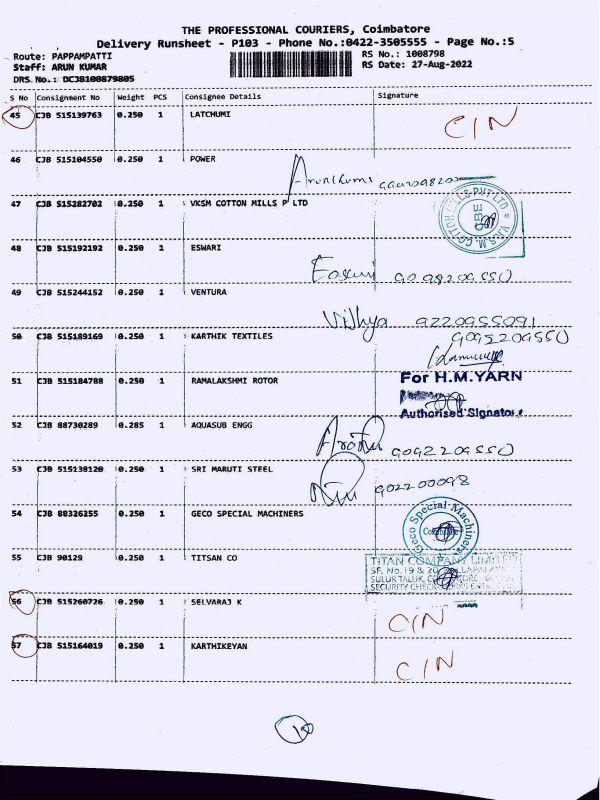 THE PROFESSIONAL COURIERS, Coimbatore
Delivery Runsheet - P103 - Phone No.:0422-3505555 - Page No.:5
Route: PAPPAMPATTI RS No.: 1008798
Staff: ARUN KUMAR RS Date: 27-Aug-2022
DRS No.: DCJB100879805
S No Consignment No Weight PCS Consignee Details Signature
45 CJB 515139763 0.250 1 LATCHUMI C/N
46 CJB 515104550 0.250 1 POWER
47 CJB 515282702 0.250 1 VKSM COTTON MILLS P LTD
48 CJB 515192192 0.250 1 ESWARI
Eswari 9098209550
49 CJB 515244152 0.250 1 VENTURA
Vidhya 9220955091
50 CJB 515189169 0.250 1 KARTHIK TEXTILES 9095209550
51 CJB 515184788 0.250 1 RAMALAKSHMI ROTOR
For H.M.YARN
Authorised Signator
52 CJB 88730289 0.285 1 AQUASUB ENGG
9092209550
53 CJB 515138120 0.250 1 SRI MARUTI STEEL
902200098
54 CJB 88326255 0.250 1 GECO SPECIAL MACHINERS
Geco Special Machiners
55 CJB 90129 0.250 1 TITSAN CO
TITAN COMPANY LIMITED
SF. No.19 & 20
SULUR TALUK,
SECURITY CHECK
56 CJB 515260726 0.250 1 SELVARAJ K
C/N
57 CJB 515164019 0.250 1 KARTHIKEYAN
C/N